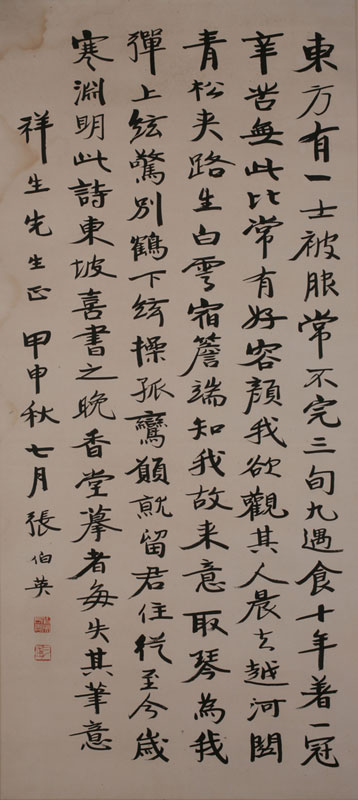 東方有一士被服常不完三旬九遇食十年着一冠
辛苦無此比常有好容顏我欲觀其人晨去越河関
青松夾路生白雲宿簷端知我故来意取琴為我
彈上絃驚別鶴下絃操孤鸞願就留君住從至今歲
寒淵明此詩東坡喜書之晚香堂摹者每失其筆意
祥生先生正 甲申秋七月張伯英